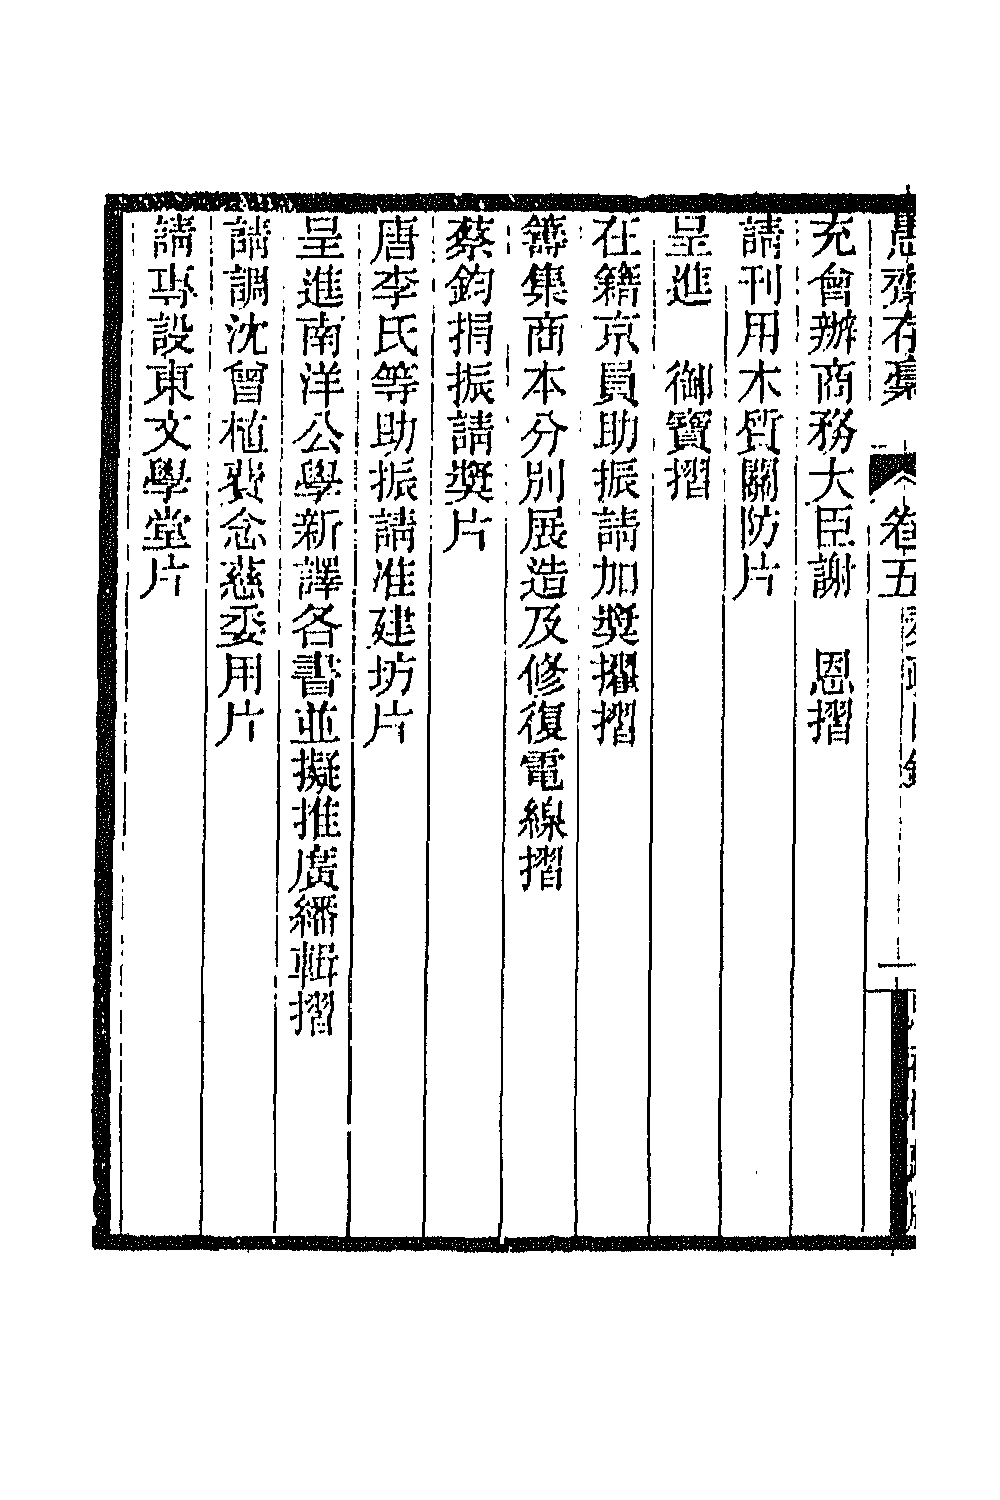 愚齋存稾　卷五　奏疏目錄　一
充會辦商務大臣謝　恩摺
請刊用木質關防片
呈進　御寶摺
在籍京員助振請加獎擢摺
籌集商本分別展造及修復電線摺
蔡鈞捐振請獎片
唐李氏等助振請准建坊片
呈進南洋公學新譯各書並擬推廣繙輯摺
請調沈曾植費念慈委用片
請專設東文學堂片